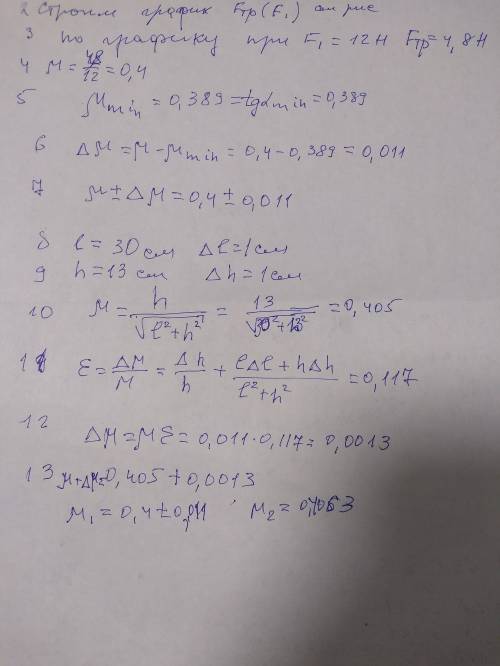 2 Строим график Fтр(F₁) см рис
3 по графику при F₁ = 12 Н Fтр = 4,8 Н
4 μ = 4,8/12 = 0,4
5 μmin = 0,389 = tgαmin = 0,389
6 Δμ = μ - μmin = 0,4 - 0,389 = 0,011
7 μ ± Δμ = 0,4 ± 0,011
8 ℓ = 30 см Δℓ = 1 см
9 h = 13 см Δh = 1 см
10 μ = h/√(ℓ² + h²) = 13/√(30² + 13²) = 0,405
11 ε = Δμ/μ = Δh/h + (ℓΔℓ + hΔh)/(ℓ² + h²) = 0,117
12 Δμ = με = 0,011 · 0,117 = 0,0013
13 μ + Δμ = 0,405 + 0,0013
μ₁ = 0,4 ± 0,011 μ₂ =